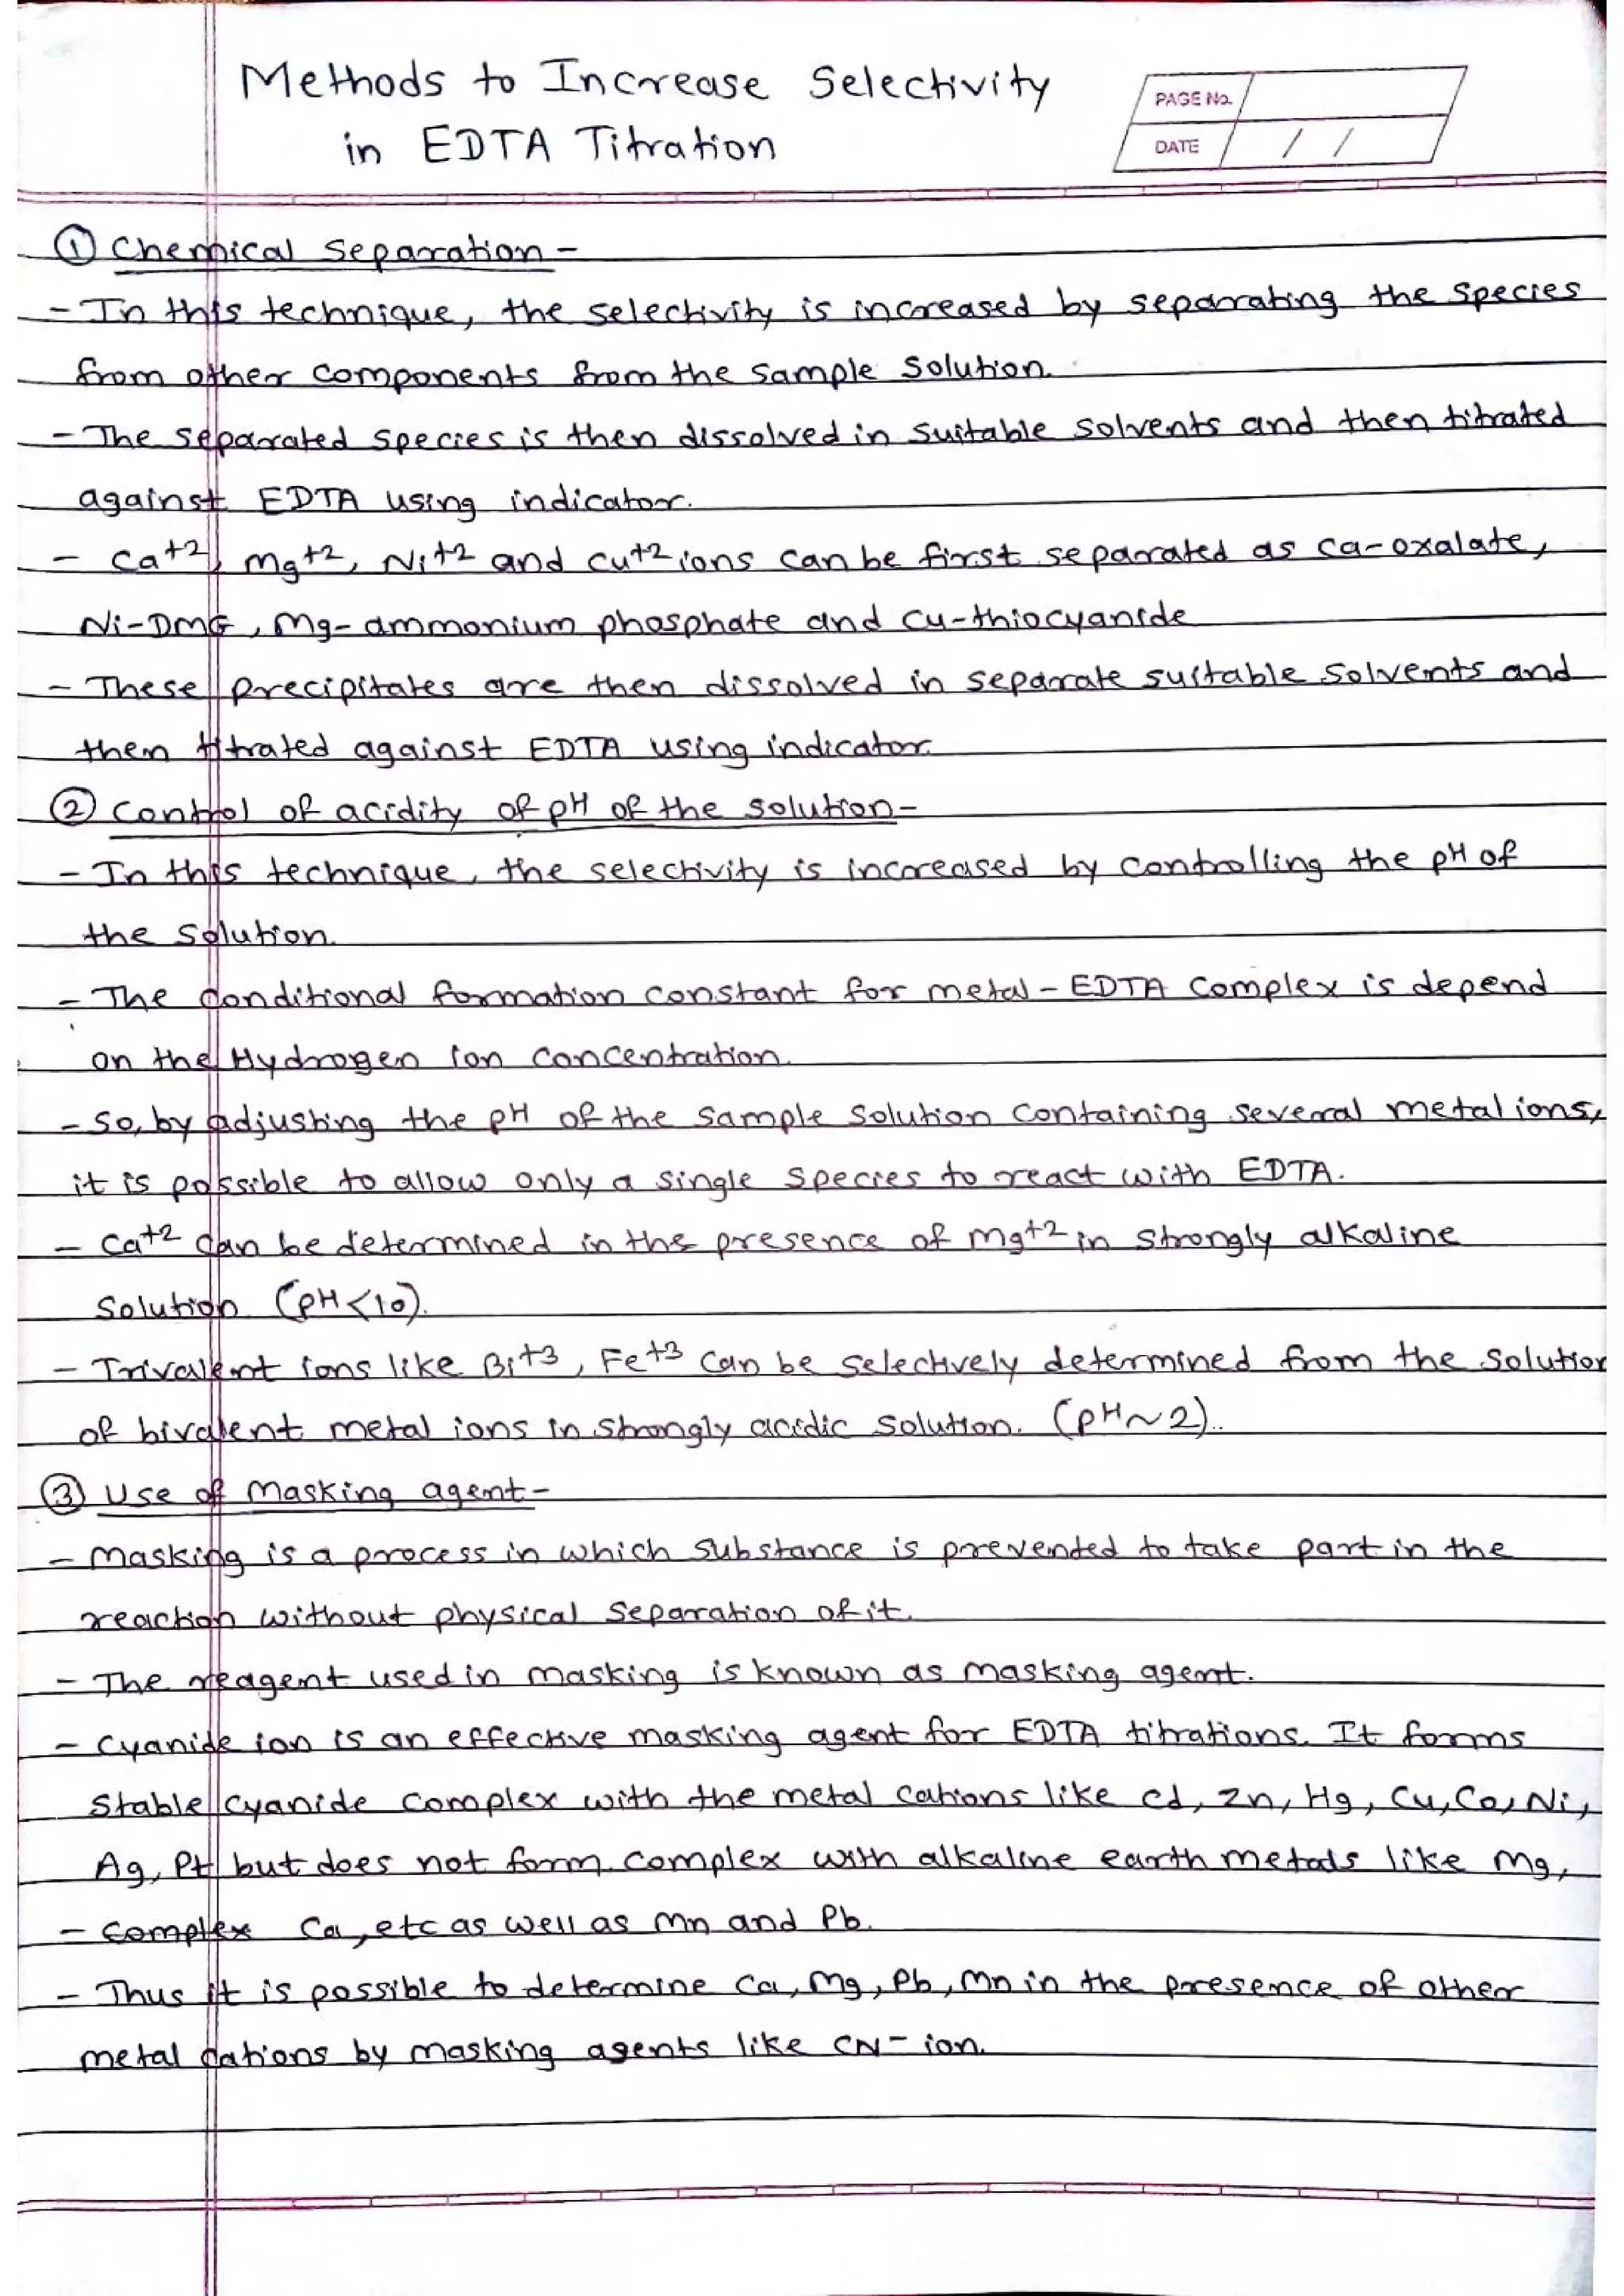 Methods to Increase Selectivity
in EDTA Titration
PAGE No.
DATE / /
① Chemical Separation -
- In this technique, the selectivity is increased by separating the species
from other components from the sample solution.
- The separated species is then dissolved in suitable solvents and then titrated
against EDTA using indicator.
- Ca+2, Mg+2, Ni+2 and Cu+2 ions can be first separated as Ca-oxalate,
Ni-DMG, Mg-ammonium phosphate and Cu-thiocyanide
- These precipitates are then dissolved in separate suitable solvents and
then titrated against EDTA using indicator.
② Control of acidity of pH of the solution-
- In this technique, the selectivity is increased by controlling the pH of
the solution.
- The conditional formation constant for metal - EDTA complex is depend
on the Hydrogen ion concentration.
- So, by adjusting the pH of the sample solution containing several metal ions,
it is possible to allow only a single species to react with EDTA.
- Ca+2 can be determined in the presence of Mg+2 in strongly alkaline
solution (pH<10).
- Trivalent ions like Bi+3, Fe+3 can be selectively determined from the solution
of bivalent metal ions in strongly acidic solution. (pH~2).
③ Use of Masking agent-
- Masking is a process in which substance is prevented to take part in the
reaction without physical separation of it.
- The reagent used in masking is known as masking agent.
- Cyanide ion is an effective masking agent for EDTA titrations. It forms
stable cyanide complex with the metal cations like Cd, Zn, Hg, Cu, Co, Ni,
Ag, Pt but does not form complex with alkaline earth metals like Mg,
- complex Ca, etc as well as Mn and Pb.
- Thus it is possible to determine Ca, Mg, Pb, Mn in the presence of other
metal cations by masking agents like CN- ion.